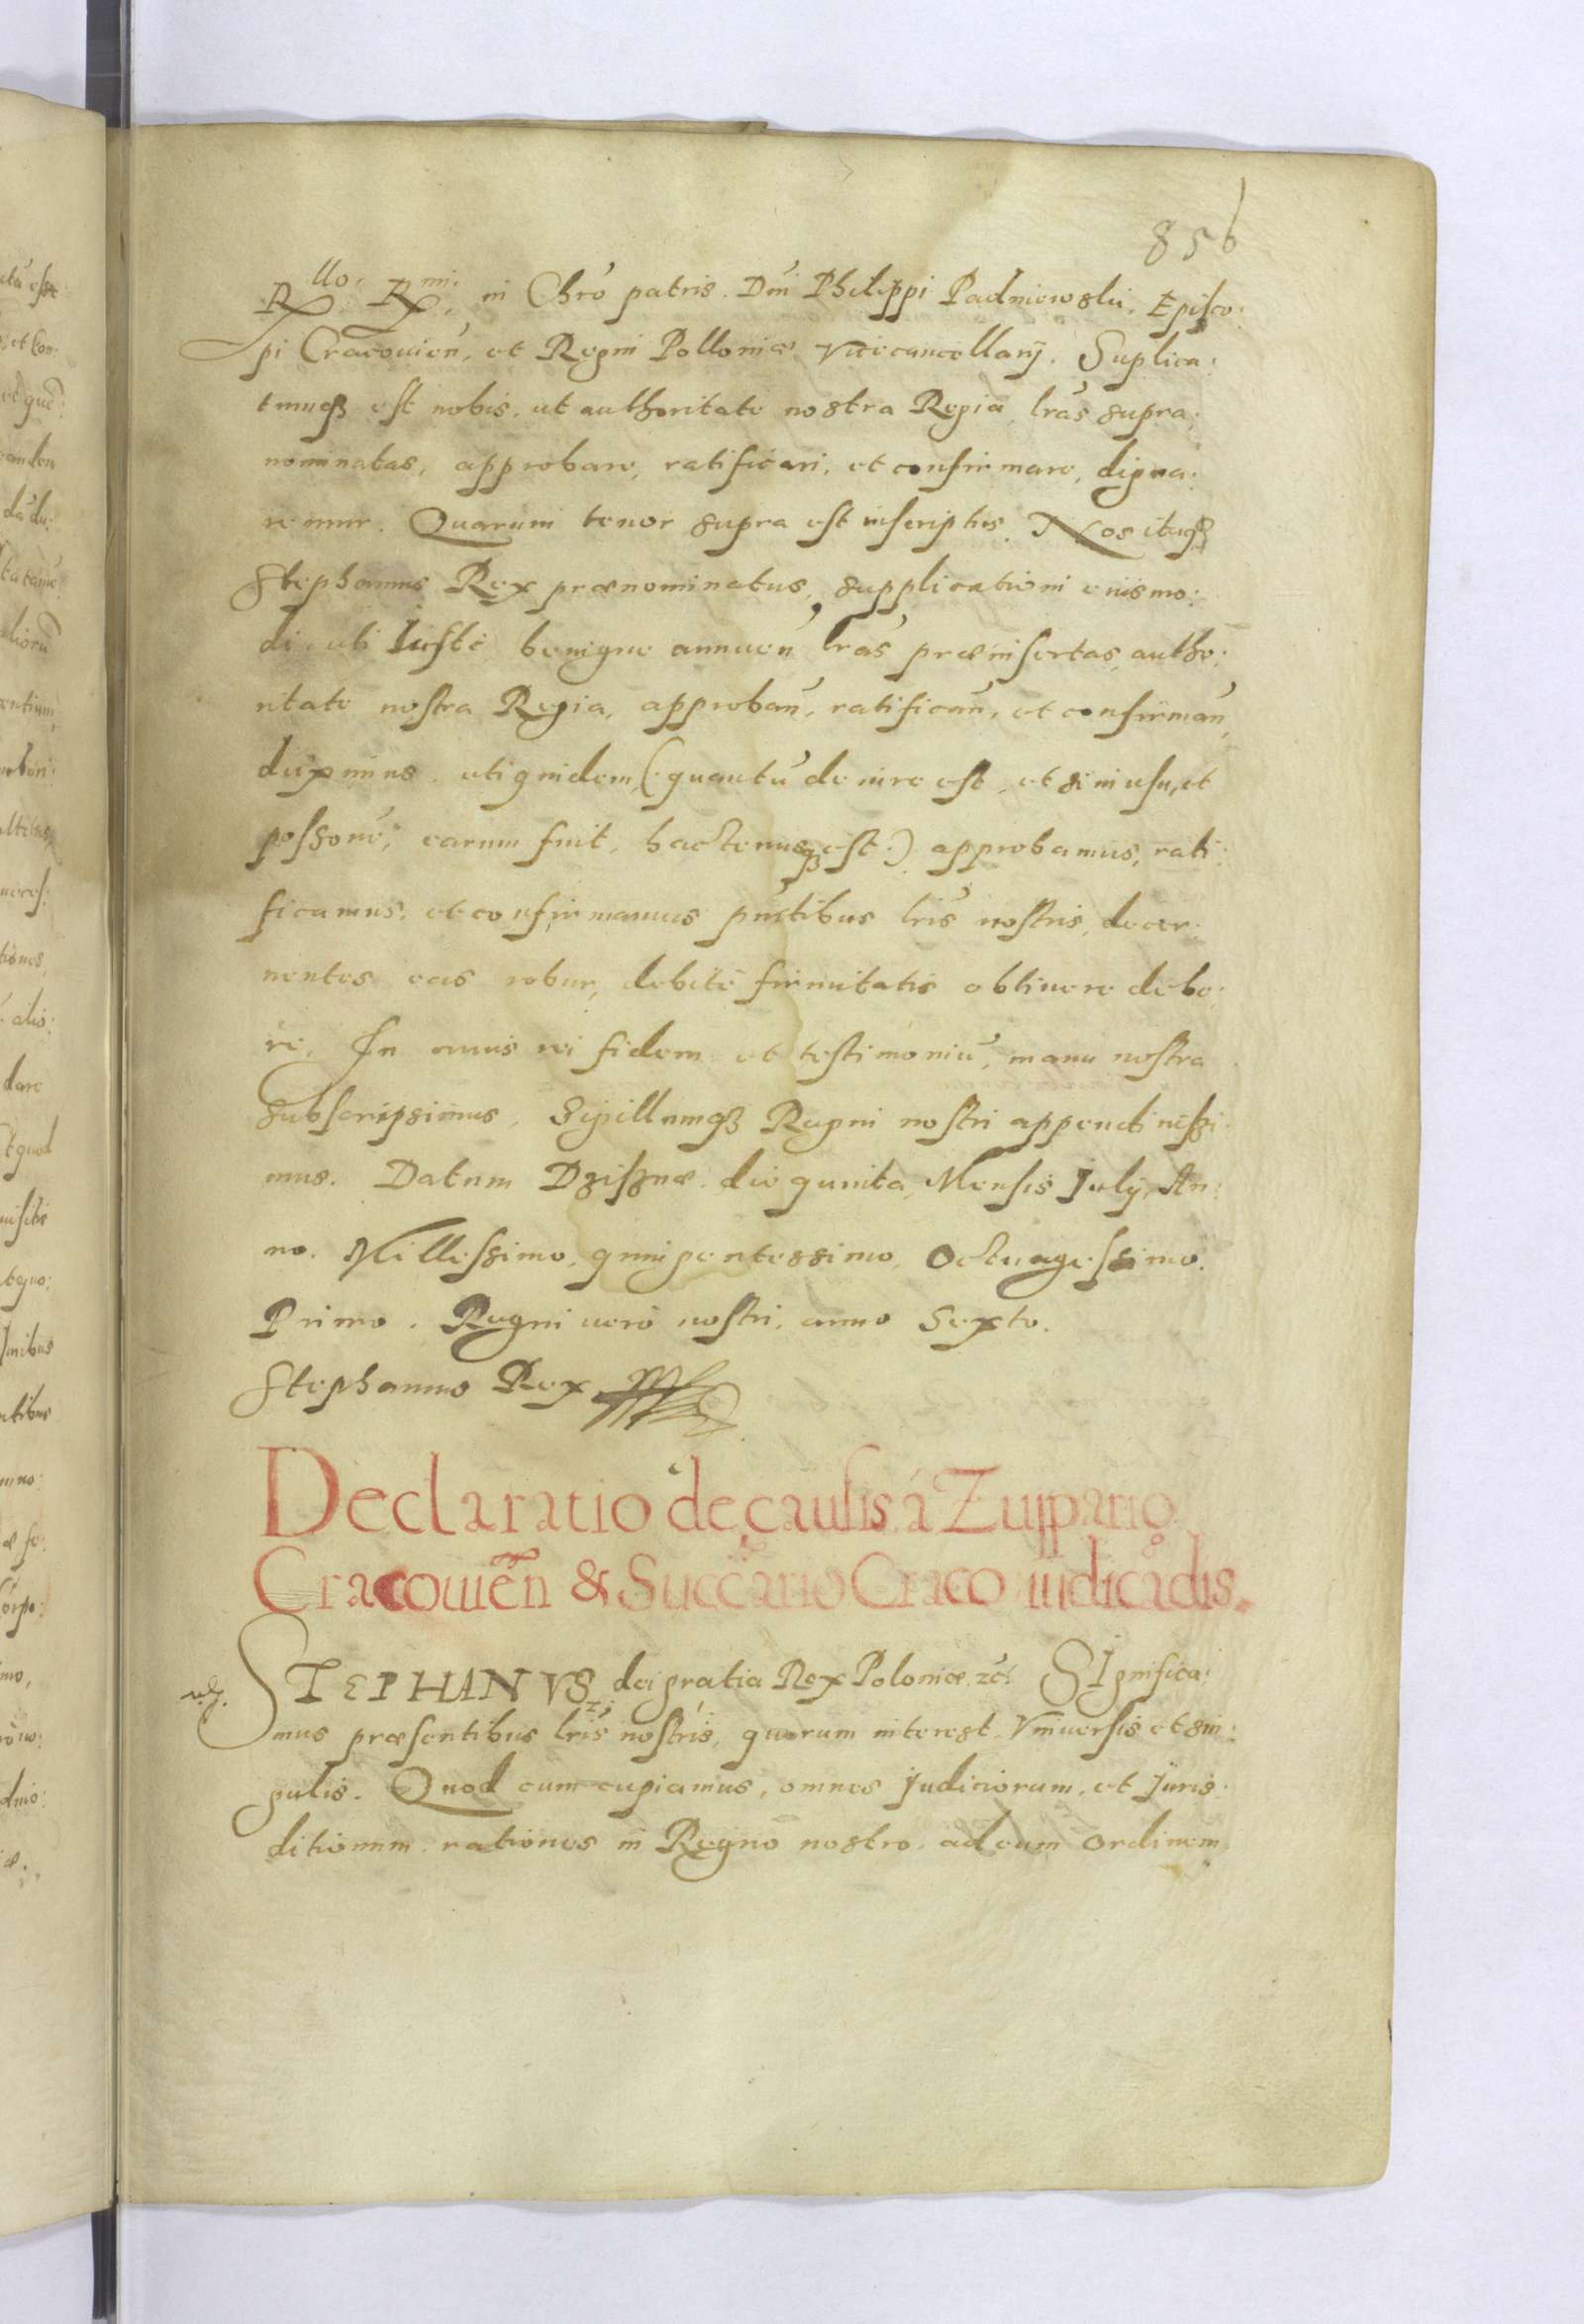 856
Rllo: Rmi: in Chro patris. Dni Philippi Padniewski, Episco:
pi Cracouien, et Regni Polloniæ Vicecancellarij. Suplica:
tumq3 est nobis, ut authoritate nostra Regia, lras supra:
nominatas, approbare, ratificari, et confirmare, digna:
remur. Quarum tenor supra est inscriptus. Nos itaq3
Stephanus Rex prænominatus, supplicationi eiusmo:
di, uti Iustæ benigne annuen lras præinsertas, autho:
ritate nostra Regia, approban, ratifican, et confirman,
duximus, utiquidem (quantu de iure est, et si in usu, et
possone, earum fuit, hactenusq3 est.) approbamus, rati:
ficamus, et confirmamus pntibus lris nostris, decer:
nentes eas robur, debitè firmitatis obtinere debe:
re. In cuius rei fidem et testimoniu, manu nostra
subscripsimus, Sigillumq3 Regni nostri appendi iussi:
mus. Datum Dzisznæ die quinta, Mensis July, An:
no. Millessimo, quingentessimo, Octuagessimo.
Primo. Regni vero nostri, anno Sexto.
Stephanus Rex
Declaratio de causis à Zuppario
Cracouien & Succario Craco iudicadis.
STEPHANVS dei gratia Rex Poloniæ zc. SIgnifica:
mus præsentibus lris nostris, quorum interest Vniuersis et sin:
gulis. Quod cum cupiamus, omnes Judiciorum, et Juris:
ditionum rationes in Regno nostro, ad eum ordinem